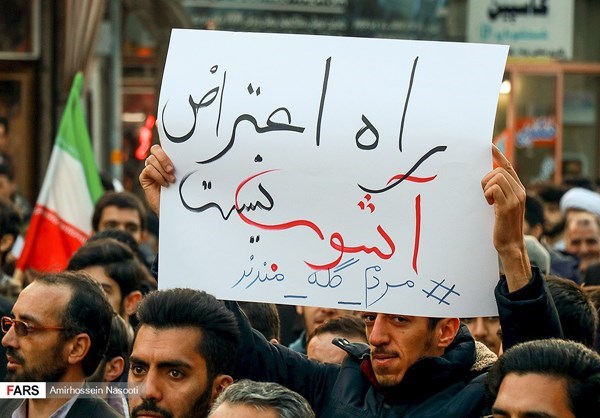 کامپین
راه اعتراض
آشوب نیست
#مردم_گله_مندند
FARS Amirhossein Nasooti